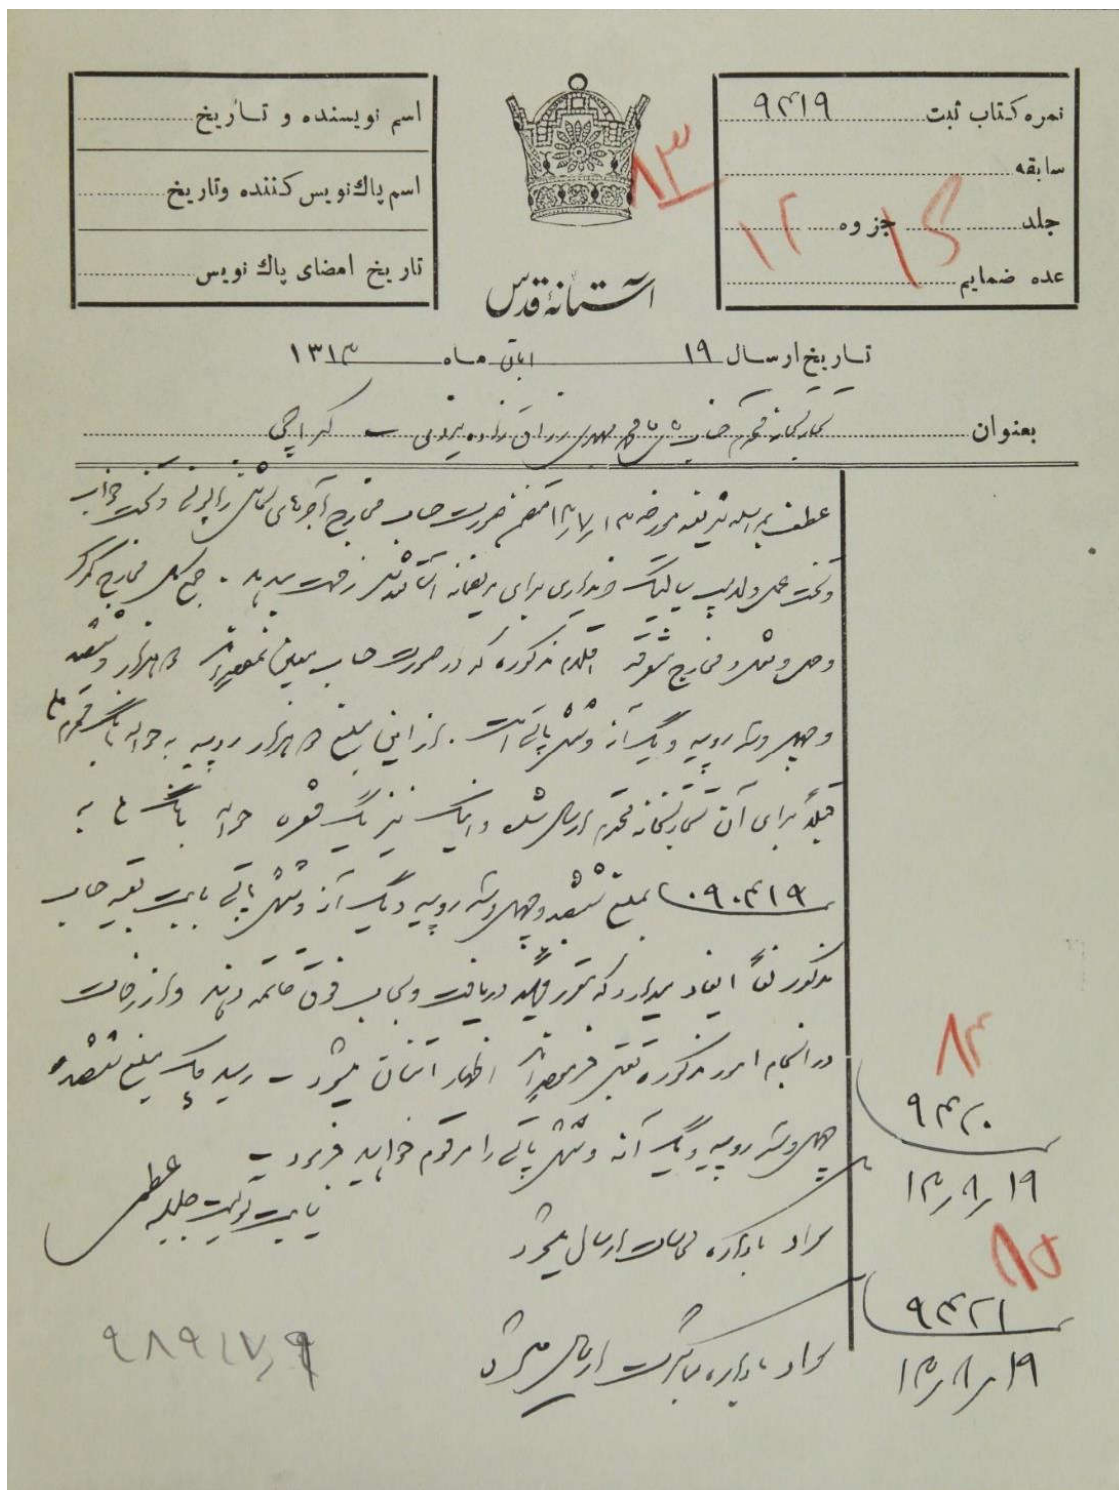 نمره کتاب ثبت ۹۴۱۹
سابقه
جلد ۱۶ جزوه ۱۲
عده ضمایم
۸۳
آستانهٔ قدس
اسم نویسنده و تاریخ
اسم پاك نویس کننده وتاریخ
تاریخ امضای پاك نویس
تاریخ ارسال ۱۹ آبان ماه ۱۳۱۴
بعنوان تجارتخانه محترم آقای محمد مهدی رزاق زاده یزدی - کراچی
عطف بمراسله شریفه مورخه متضمن صورت حساب مخارج آجرهای کاشی و تخت خواب
و تخت عمل و خریداری برای مریضخانه آستانقدس زحمت میدهد. جمع کل مخارج گمرک
و حمل و نقل و مخارج متفرقه اقلام مذکوره که در صورت حساب معین نموده‌اند هزار و ششصد
و چهل و سه روپیه و یک آنه و شش پائی است. از این مبلغ هزار روپیه به حواله بانک محترم ملی
قبلاً برای آن تجارتخانه محترم ارسال شده و اینک نیز یک فقره حواله بانک ملی به
۰۹۰۴۱۹ بمبلغ ششصد و چهل و سه روپیه و یک آنه و شش پائی بابت بقیه حساب
مذکور لفاً ایفاد میدارد که دریافت و بحساب فوق خاتمه دهند و از زحمات
در انجام امور مذکوره تقبل فرموده‌اند اظهار امتنان میشود - رسید چک مبلغ ششصد و
چهل و سه روپیه و یک آنه و شش پائی را مرقوم خواهید فرمود -
نیابت تولیت جلیله عظمی
سواد باداره محاسبات ارسال میشود
سواد باداره مباشرت ارسال میشود
۸۴
۹۴۲۰
۱۴٫۸٫۱۹
۸۵
۹۴۲۱
۱۴٫۸٫۱۹